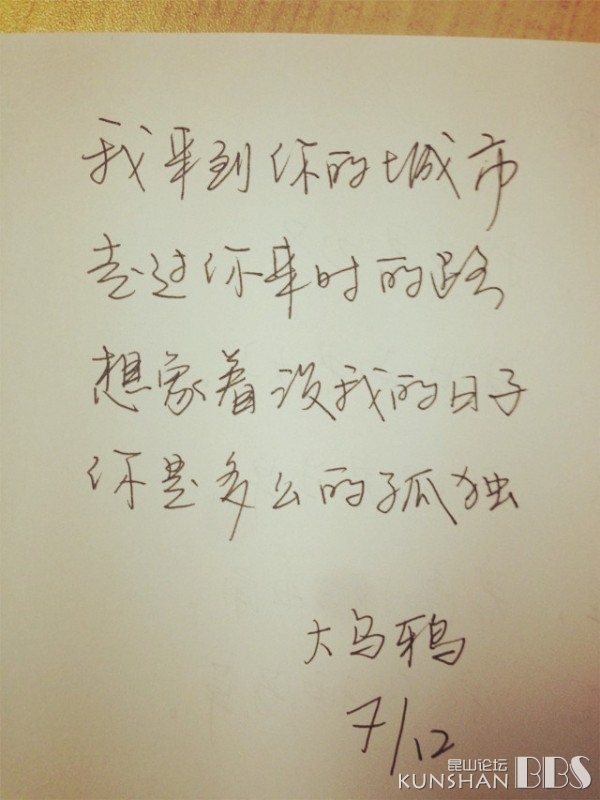 我来到你的城市
走过你来时的路
想象着没我的日子
你是多么的孤独
大乌鸦
7/12
昆山论坛
KUNSHAN BBS